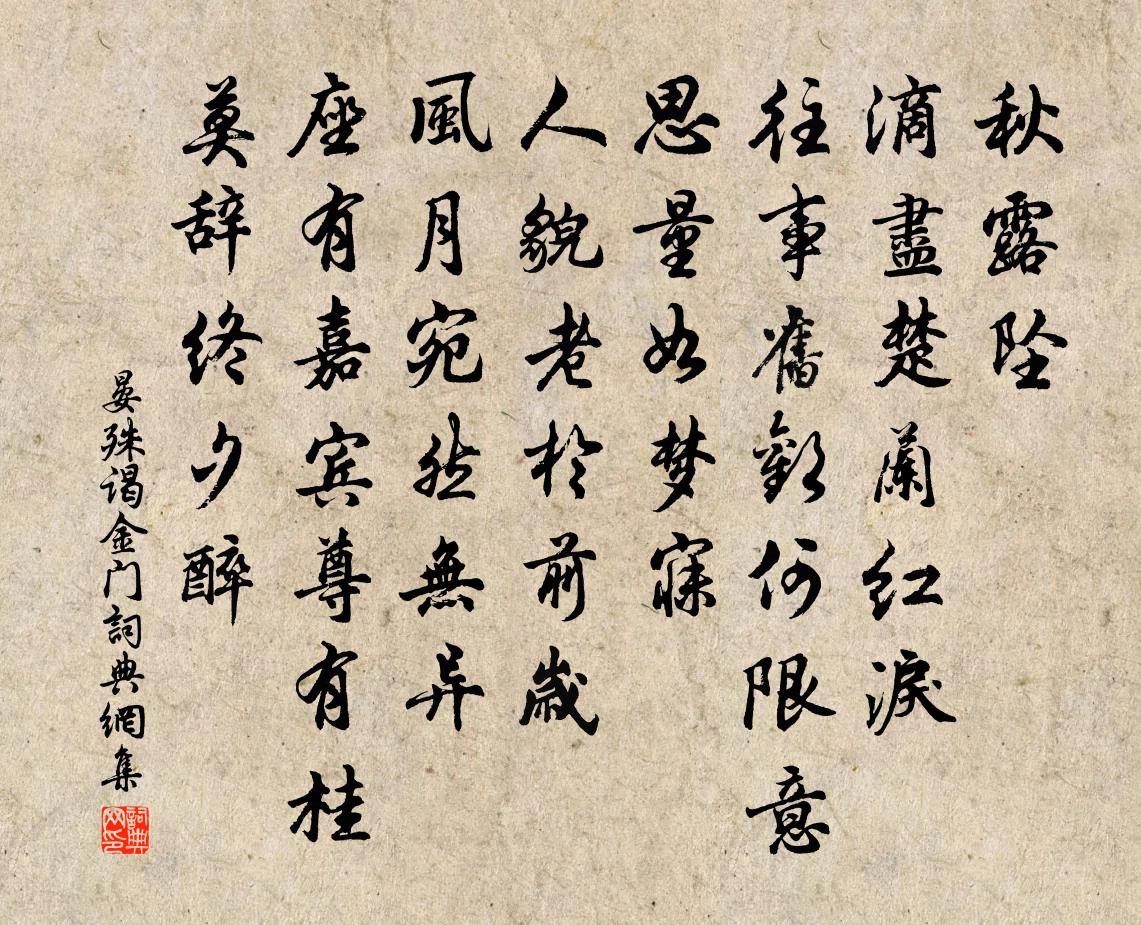 秋露坠
滴盡楚蘭红淚
往事舊歡何限意
思量如梦寐
人貌老於前歲
風月宛然無异
座有嘉宾尊有桂
莫辞终夕醉
晏殊谒金门詞典網集
詞典网印